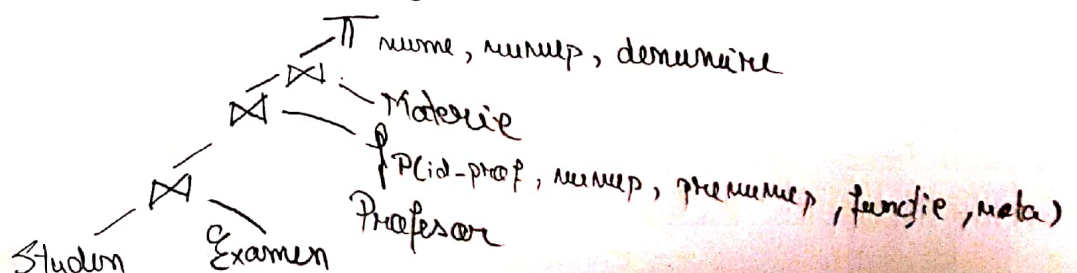 π nume, numep, denumire
⋈
⋈ Materie
ρ P(id-prof, numep, prenumep, funcție, nota)
⋈ Profesor
Studen Examen